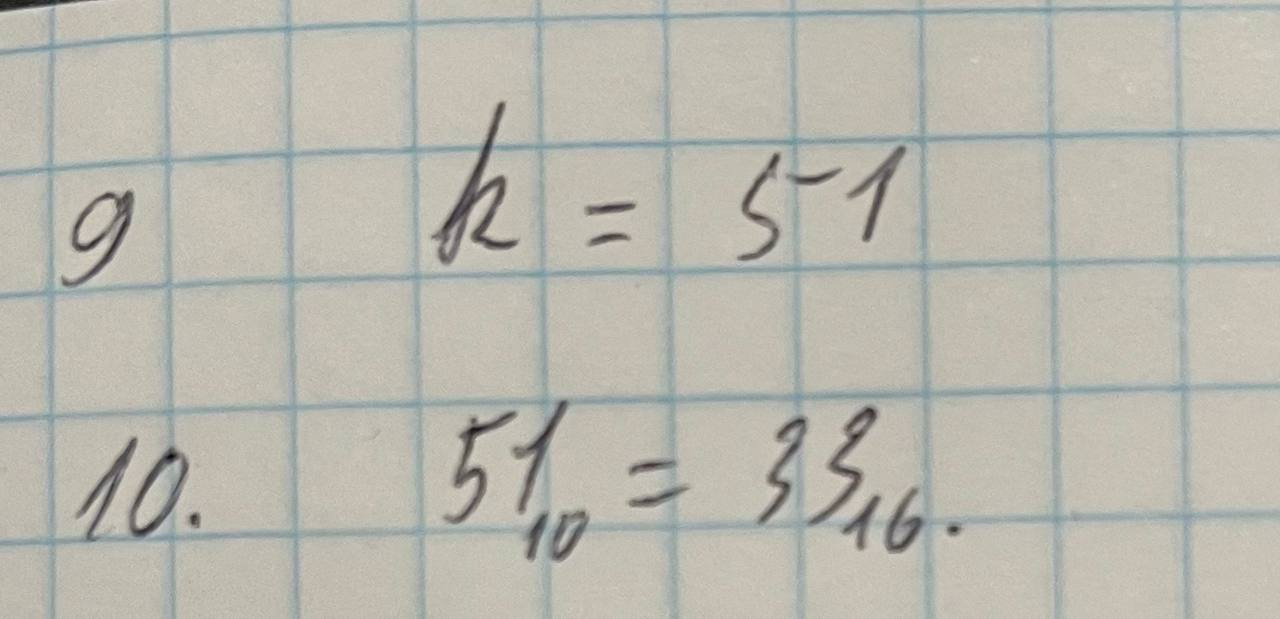 9 k = 51
10. 51₁₀ = 33₁₆.